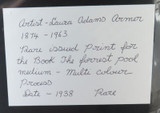 Artist - Laura Adams Armer
1874 - 1963
Rare issued Print for
the Book The forrest pool
medium - Multi colour
Process
Date - 1938 Rare